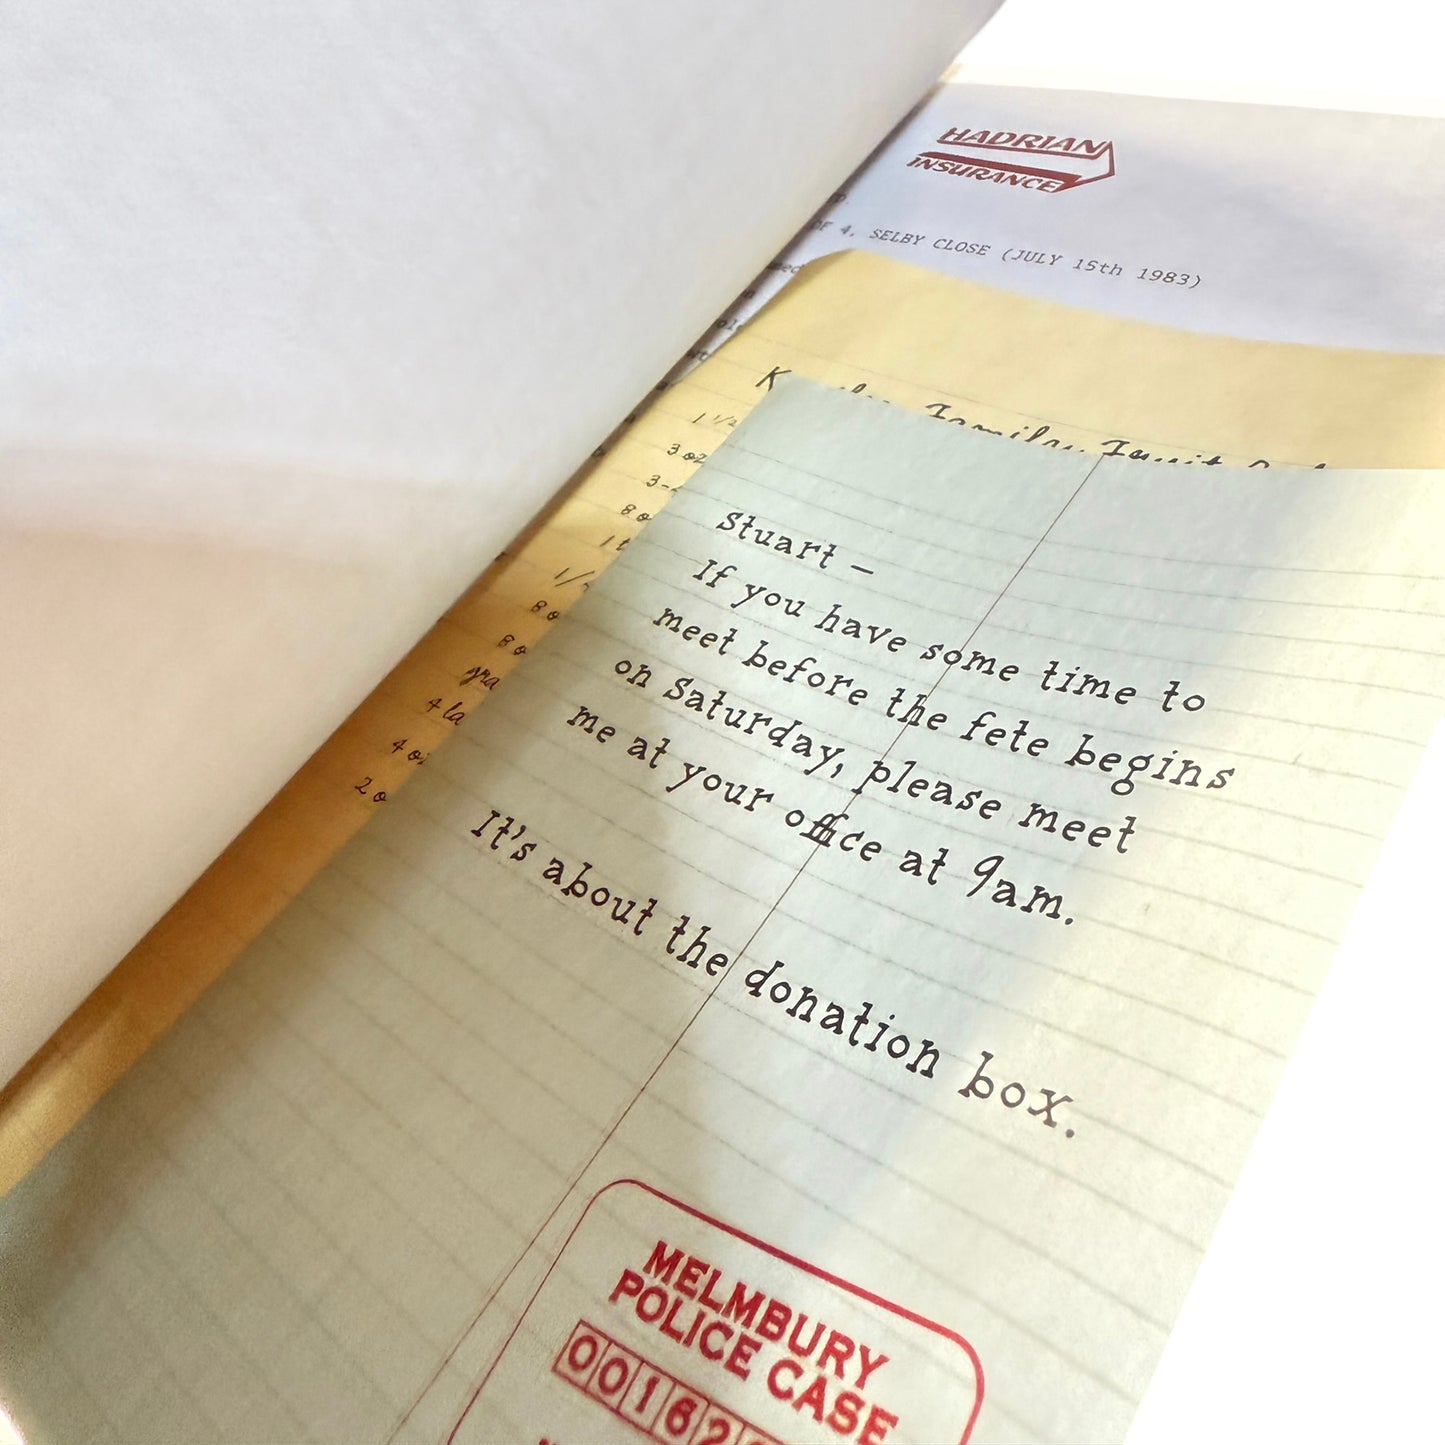 HADRIAN
INSURANCE
4, SELBY CLOSE (JULY 15th 1983)
Family Fruit
1 1/2
3 oz
3-
8 o
1 t
1/2
8 o
8 o
gra
4 la
4 oz
2 o
Stuart –
If you have some time to
meet before the fete begins
on Saturday, please meet
me at your office at 9am.
It's about the donation box.
MELMBURY
POLICE CASE
00162